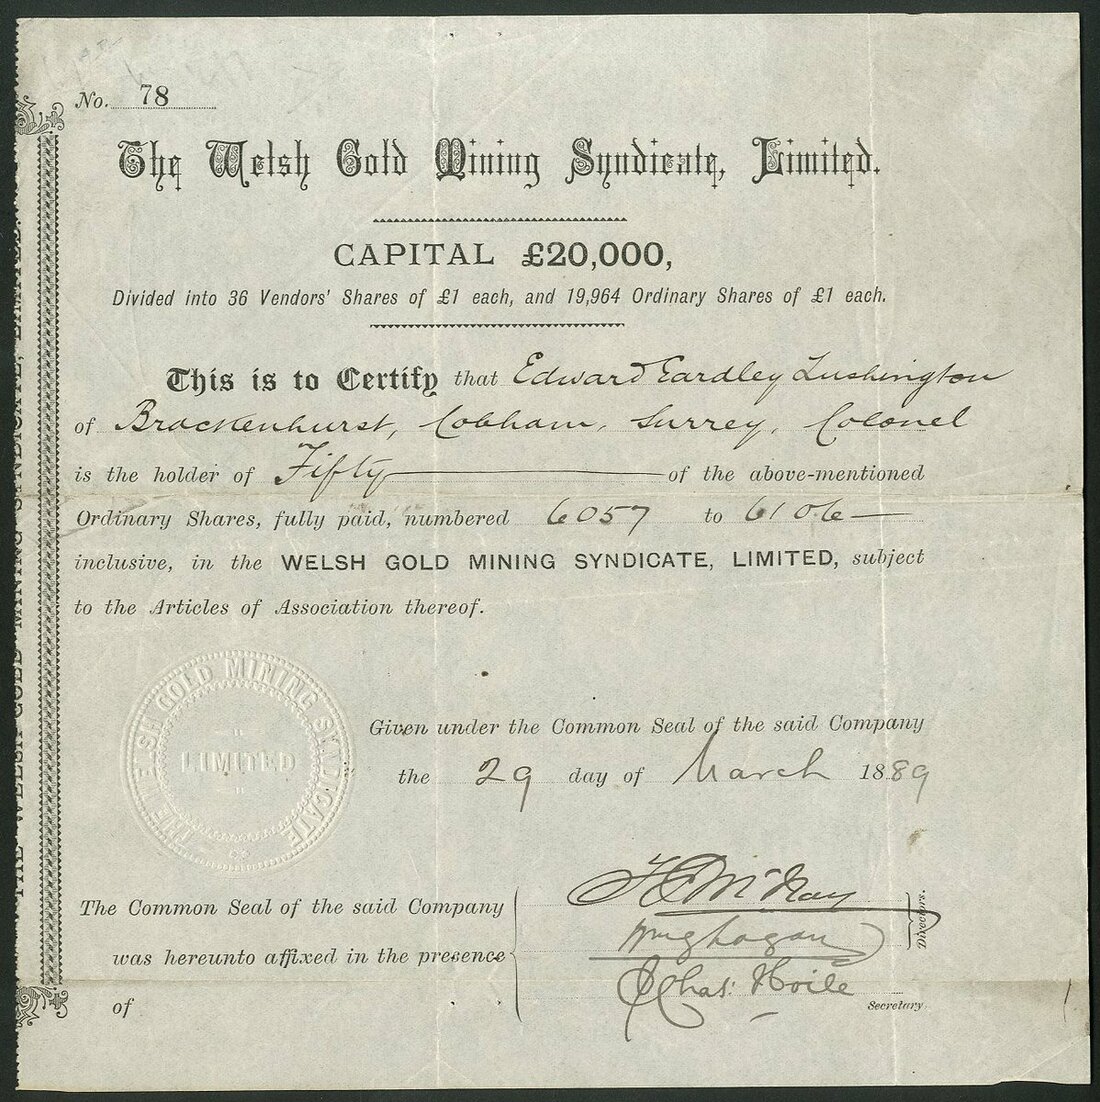 No. 78
The Welsh Gold Mining Syndicate, Limited.
CAPITAL £20,000,
Divided into 36 Vendors' Shares of £1 each, and 19,964 Ordinary Shares of £1 each.
This is to Certify that Edward Eardley Lushington
of Brackenhurst, Cobham, Surrey, Colonel
is the holder of Fifty of the above-mentioned
Ordinary Shares, fully paid, numbered 6057 to 6106
inclusive, in the WELSH GOLD MINING SYNDICATE, LIMITED, subject
to the Articles of Association thereof.
THE WELSH GOLD MINING SYNDICATE
LIMITED
Given under the Common Seal of the said Company
the 29 day of March 1889
The Common Seal of the said Company
was hereunto affixed in the presence
of
Directors.
Chas. Hoile
Secretary.
THE WELSH GOLD MINING SYNDICATE, LIMITED.